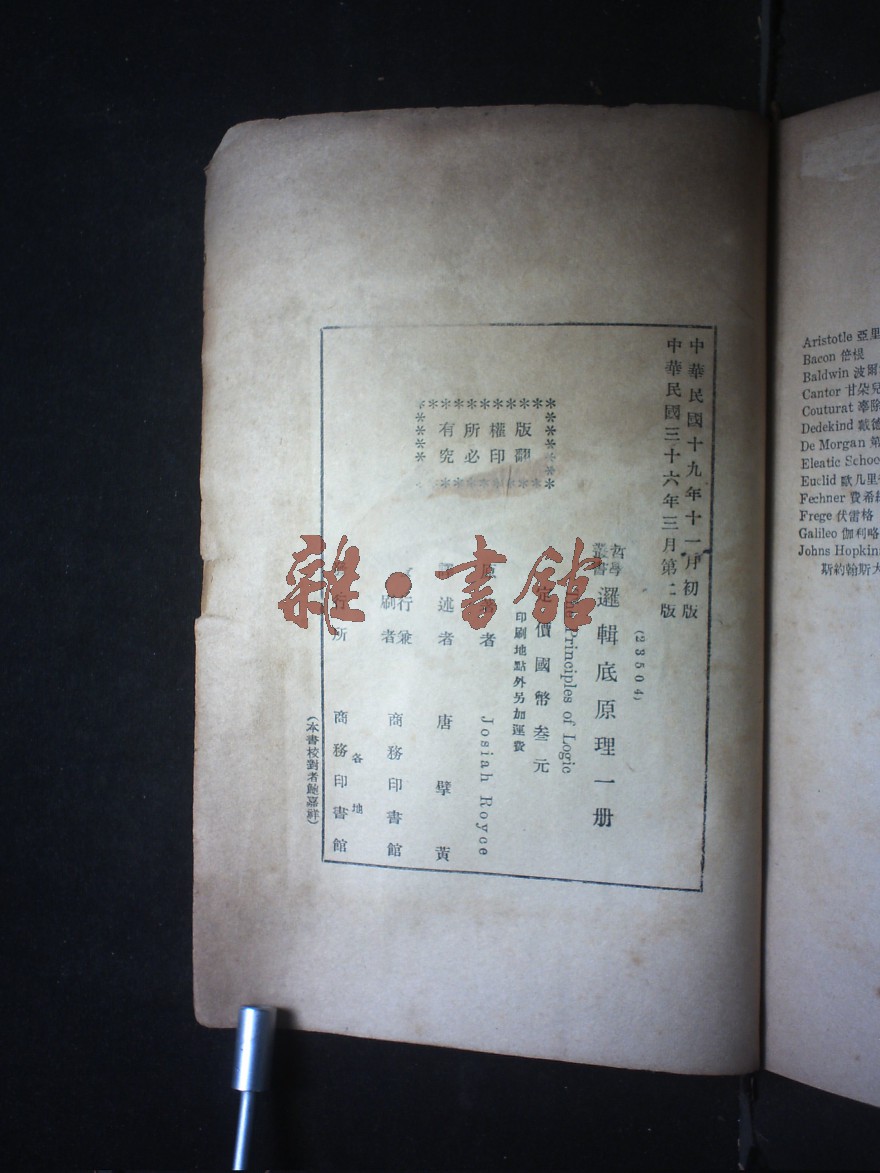 中華民國十九年十一月初版
中華民國三十六年三月第二版
(23504)
哲學
叢書
邏輯底原理一册
Principles of Logic
定價國幣叁元
印刷地點外另加運費
版權所有
翻印必究
原著者 Josiah Royce
譯述者 唐擘黃
行兼
刷者 商務印書館
行所 各地 商務印書館
(本書校對者鮑嘉祥)
雜·書館
Aristotle 亞里
Bacon 倍根
Baldwin 波爾
Cantor 甘朵兒
Couturat
Dedekind 戴德
De Morgan 第
Eleatic Schoo
Euclid 歐几里
Fechner 費希
Frege 伏雷格
Galileo 伽利略
Johns Hopkin
斯約翰斯大